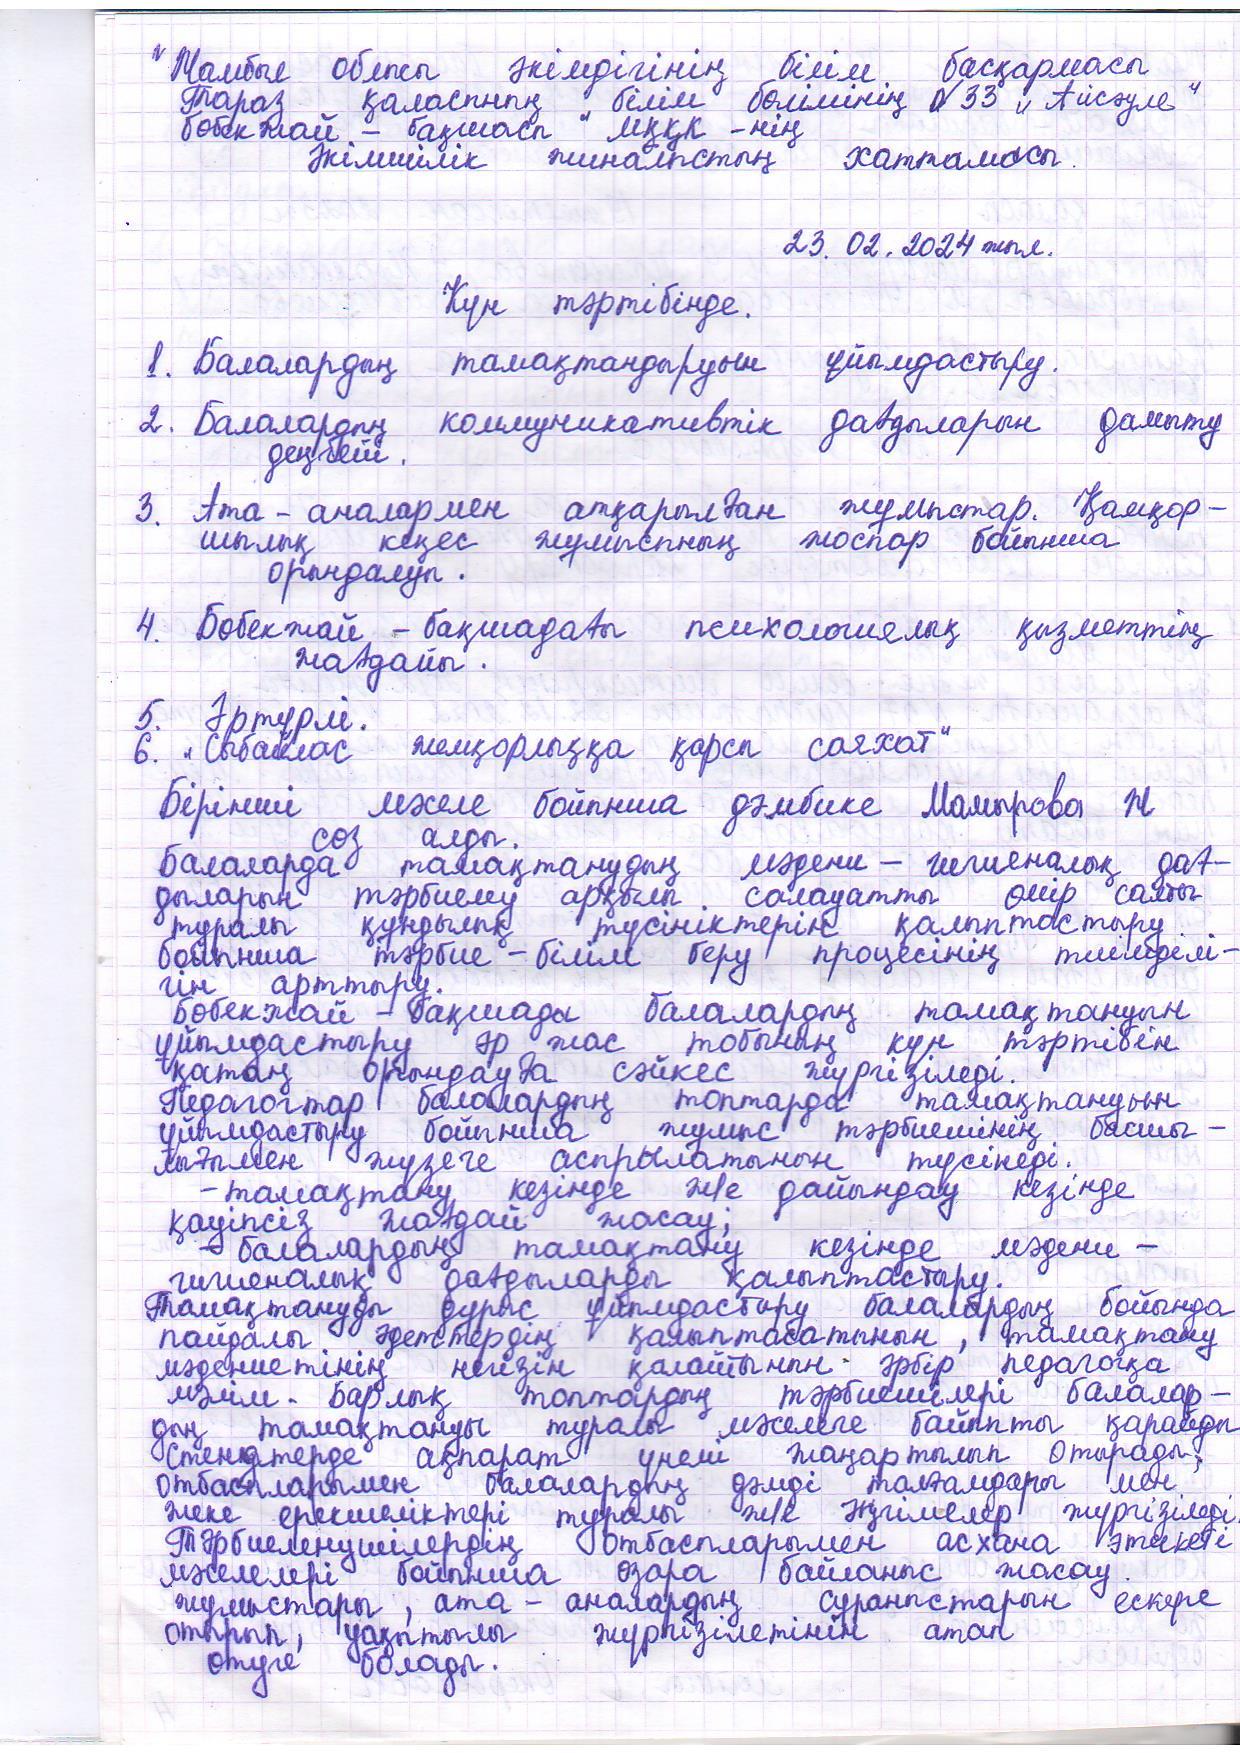 "Жамбыл облысы әкімдігінің білім басқармасы
Тараз қаласының білім бөлімінің №33 "Айсәуле"
бөбекжай - бақшасы" МҚҚК -нің
Әкімшілік жиналыстың хаттамасы.
23.02.2024 жыл.
Күн тәртібінде.
1. Балалардың тамақтандыруын ұйымдастыру.
2. Балалардың коммуникативтік дағдыларын дамыту
деңгейі.
3. Ата - аналармен атқарылған жұмыстар. Қамқор-
шылық кеңес жұмысының жоспар бойынша
орындалуы.
4. Бөбекжай - бақшадағы психологиялық қызметтің
жағдайы.
5. Әртүрлі.
6. "Сыбайлас жемқорлыққа қарсы саяхат"
Бірінші мәселе бойынша дәмбике Мамырова Ж
сөз алды.
Балаларда тамақтанудың мәдени - гигиеналық дағ-
дыларын тәрбиелеу арқылы салауатты өмір салты
туралы құндылық түсініктерін қалыптастыру
бойынша тәрбие - білім беру процесінің тиімділі-
гін арттыру.
Бөбекжай - бақшада балалардың тамақтануын
ұйымдастыру әр жас тобының күн тәртібін
қатаң орындауға сәйкес жүргізіледі.
Педагогтар балалардың топтарда тамақтануын
ұйымдастыру бойынша жұмыс тәрбиешінің басшы-
лығымен жүзеге асырылатынын түсінеді.
- тамақтану кезінде ж/е дайындау кезінде
қауіпсіз жағдай жасау;
- балалардың тамақтану кезінде мәдени -
гигиеналық дағдыларды қалыптастыру.
Тамақтануды дұрыс ұйымдастыру балалардың бойында
пайдалы әдеттердің қалыптасатынын, тамақтану
мәдениетінің негізін қалайтынын әрбір педагогқа
мәлім. Барлық топтардың тәрбиешілері балалар-
дың тамақтануы туралы мәселеге байыпты қарайды
Стендтерде ақпарат үнемі жаңартылып отырады,
отбасыларымен балалардың дәмді талғамдары мен
жеке ерекшеліктері туралы ж/е әңгімелер жүргізіледі.
Тәрбиеленушілердің отбасыларымен асхана этикеті
мәселелері бойынша өзара байланыс жасау
жұмыстары, ата - аналардың сұраныстарын ескере
отырып, уақытылы жүргізілетінін атап
өтуге болады.